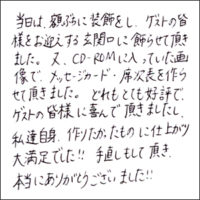 当日は、額縁に装飾をし、ゲストの皆
様をお迎えする玄関口に飾らせて頂き
ました。又、CD-ROMに入っていた画
像で、メッセージカード・席次表を作ら
せて頂きました。どれもとても好評で、
ゲストの皆様に喜んで頂きましたし、
私達自身、作りたかったものに仕上がり
大満足でした!! 手直しもして頂き、
本当にありがとうございました!!